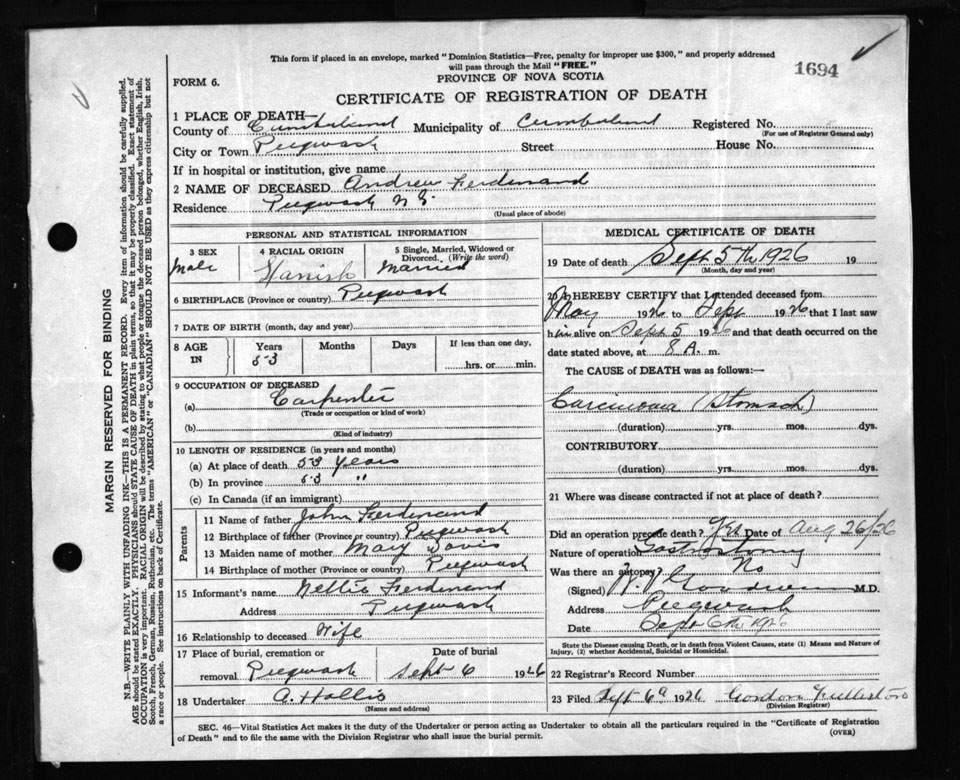 This form if placed in an envelope, marked "Dominion Statistics—Free, penalty for improper use $300," and properly addressed
will pass through the Mail "FREE."
1694
FORM 6.
PROVINCE OF NOVA SCOTIA
CERTIFICATE OF REGISTRATION OF DEATH
1 PLACE OF DEATH—
County of Cumberland Municipality of Cumberland Registered No.
(For use of Registrar General only)
City or Town Pugwash Street House No.
If in hospital or institution, give name
2 NAME OF DECEASED Andrew Ferdinand
Residence Pugwash N S.
(Usual place of abode)
PERSONAL AND STATISTICAL INFORMATION
3 SEX 4 RACIAL ORIGIN 5 Single, Married, Widowed or Divorced. (Write the word)
Male Married
6 BIRTHPLACE (Province or country) Pugwash
7 DATE OF BIRTH (month, day and year)
8 AGE IN Years Months Days If less than one day,
53 hrs. or min.
9 OCCUPATION OF DECEASED
(a) Carpenter
(Trade or occupation or kind of work)
(b)
(Kind of industry)
10 LENGTH OF RESIDENCE (in years and months)
(a) At place of death 53 Years
(b) In province 53 "
(c) In Canada (if an immigrant)
Parents
11 Name of father John Ferdinand
12 Birthplace of father (Province or country) Pugwash
13 Maiden name of mother Mary Davis
14 Birthplace of mother (Province or country) Pugwash
15 Informant's name Nettie Ferdinand
Address Pugwash
16 Relationship to deceased Wife
17 Place of burial, cremation or removal Date of burial
Pugwash Sept 6 1926
18 Undertaker A. Hollis
(Name and address)
MEDICAL CERTIFICATE OF DEATH
19 Date of death Sept 5th 1926 19
(Month, day and year)
20 I HEREBY CERTIFY that I attended deceased from
May 1926 to Sept 1926 that I last saw
him alive on Sept 5 1926 and that death occurred on
date stated above, at 8 A. m.
The CAUSE of DEATH was as follows:—
Carcinoma (Stomach)
(duration) yrs. mos. dys.
CONTRIBUTORY
(duration) yrs. mos. dys.
21 Where was disease contracted if not at place of death?
Did an operation precede death? Yes Date of Aug 26/26
Nature of operation Gastrostomy
Was there an autopsy? No
(Signed) M.D.
Address Pugwash
Date Sept 6th 1926
State the Disease causing Death, or in death from Violent Causes, state (1) Means and Nature of
Injury, (2) whether Accidental, Suicidal or Homicidal.
22 Registrar's Record Number
23 Filed Sept 6th 1926 Gordon
(Division Registrar)
SEC. 46—Vital Statistics Act makes it the duty of the Undertaker or person acting as Undertaker to obtain all the particulars required in the "Certificate of Registration
of Death" and to file the same with the Division Registrar who shall issue the burial permit.
(OVER)
MARGIN RESERVED FOR BINDING
N.B.—WRITE PLAINLY WITH UNFADING INK—THIS IS A PERMANENT RECORD. Every item of information should be carefully supplied.
AGE should be stated EXACTLY. PHYSICIANS should STATE CAUSE OF DEATH in plain terms, so that it may be properly classified. Exact statement of
OCCUPATION is very important. RACIAL ORIGIN will be described by stating to what people or tongue the deceased person belonged, whether English, Irish,
Scotch, French, German, Russian, Ruthenian, etc. The terms "AMERICAN" or "CANADIAN" SHOULD NOT BE USED as they express citizenship but not
a race or people. See instructions on back of Certificate.